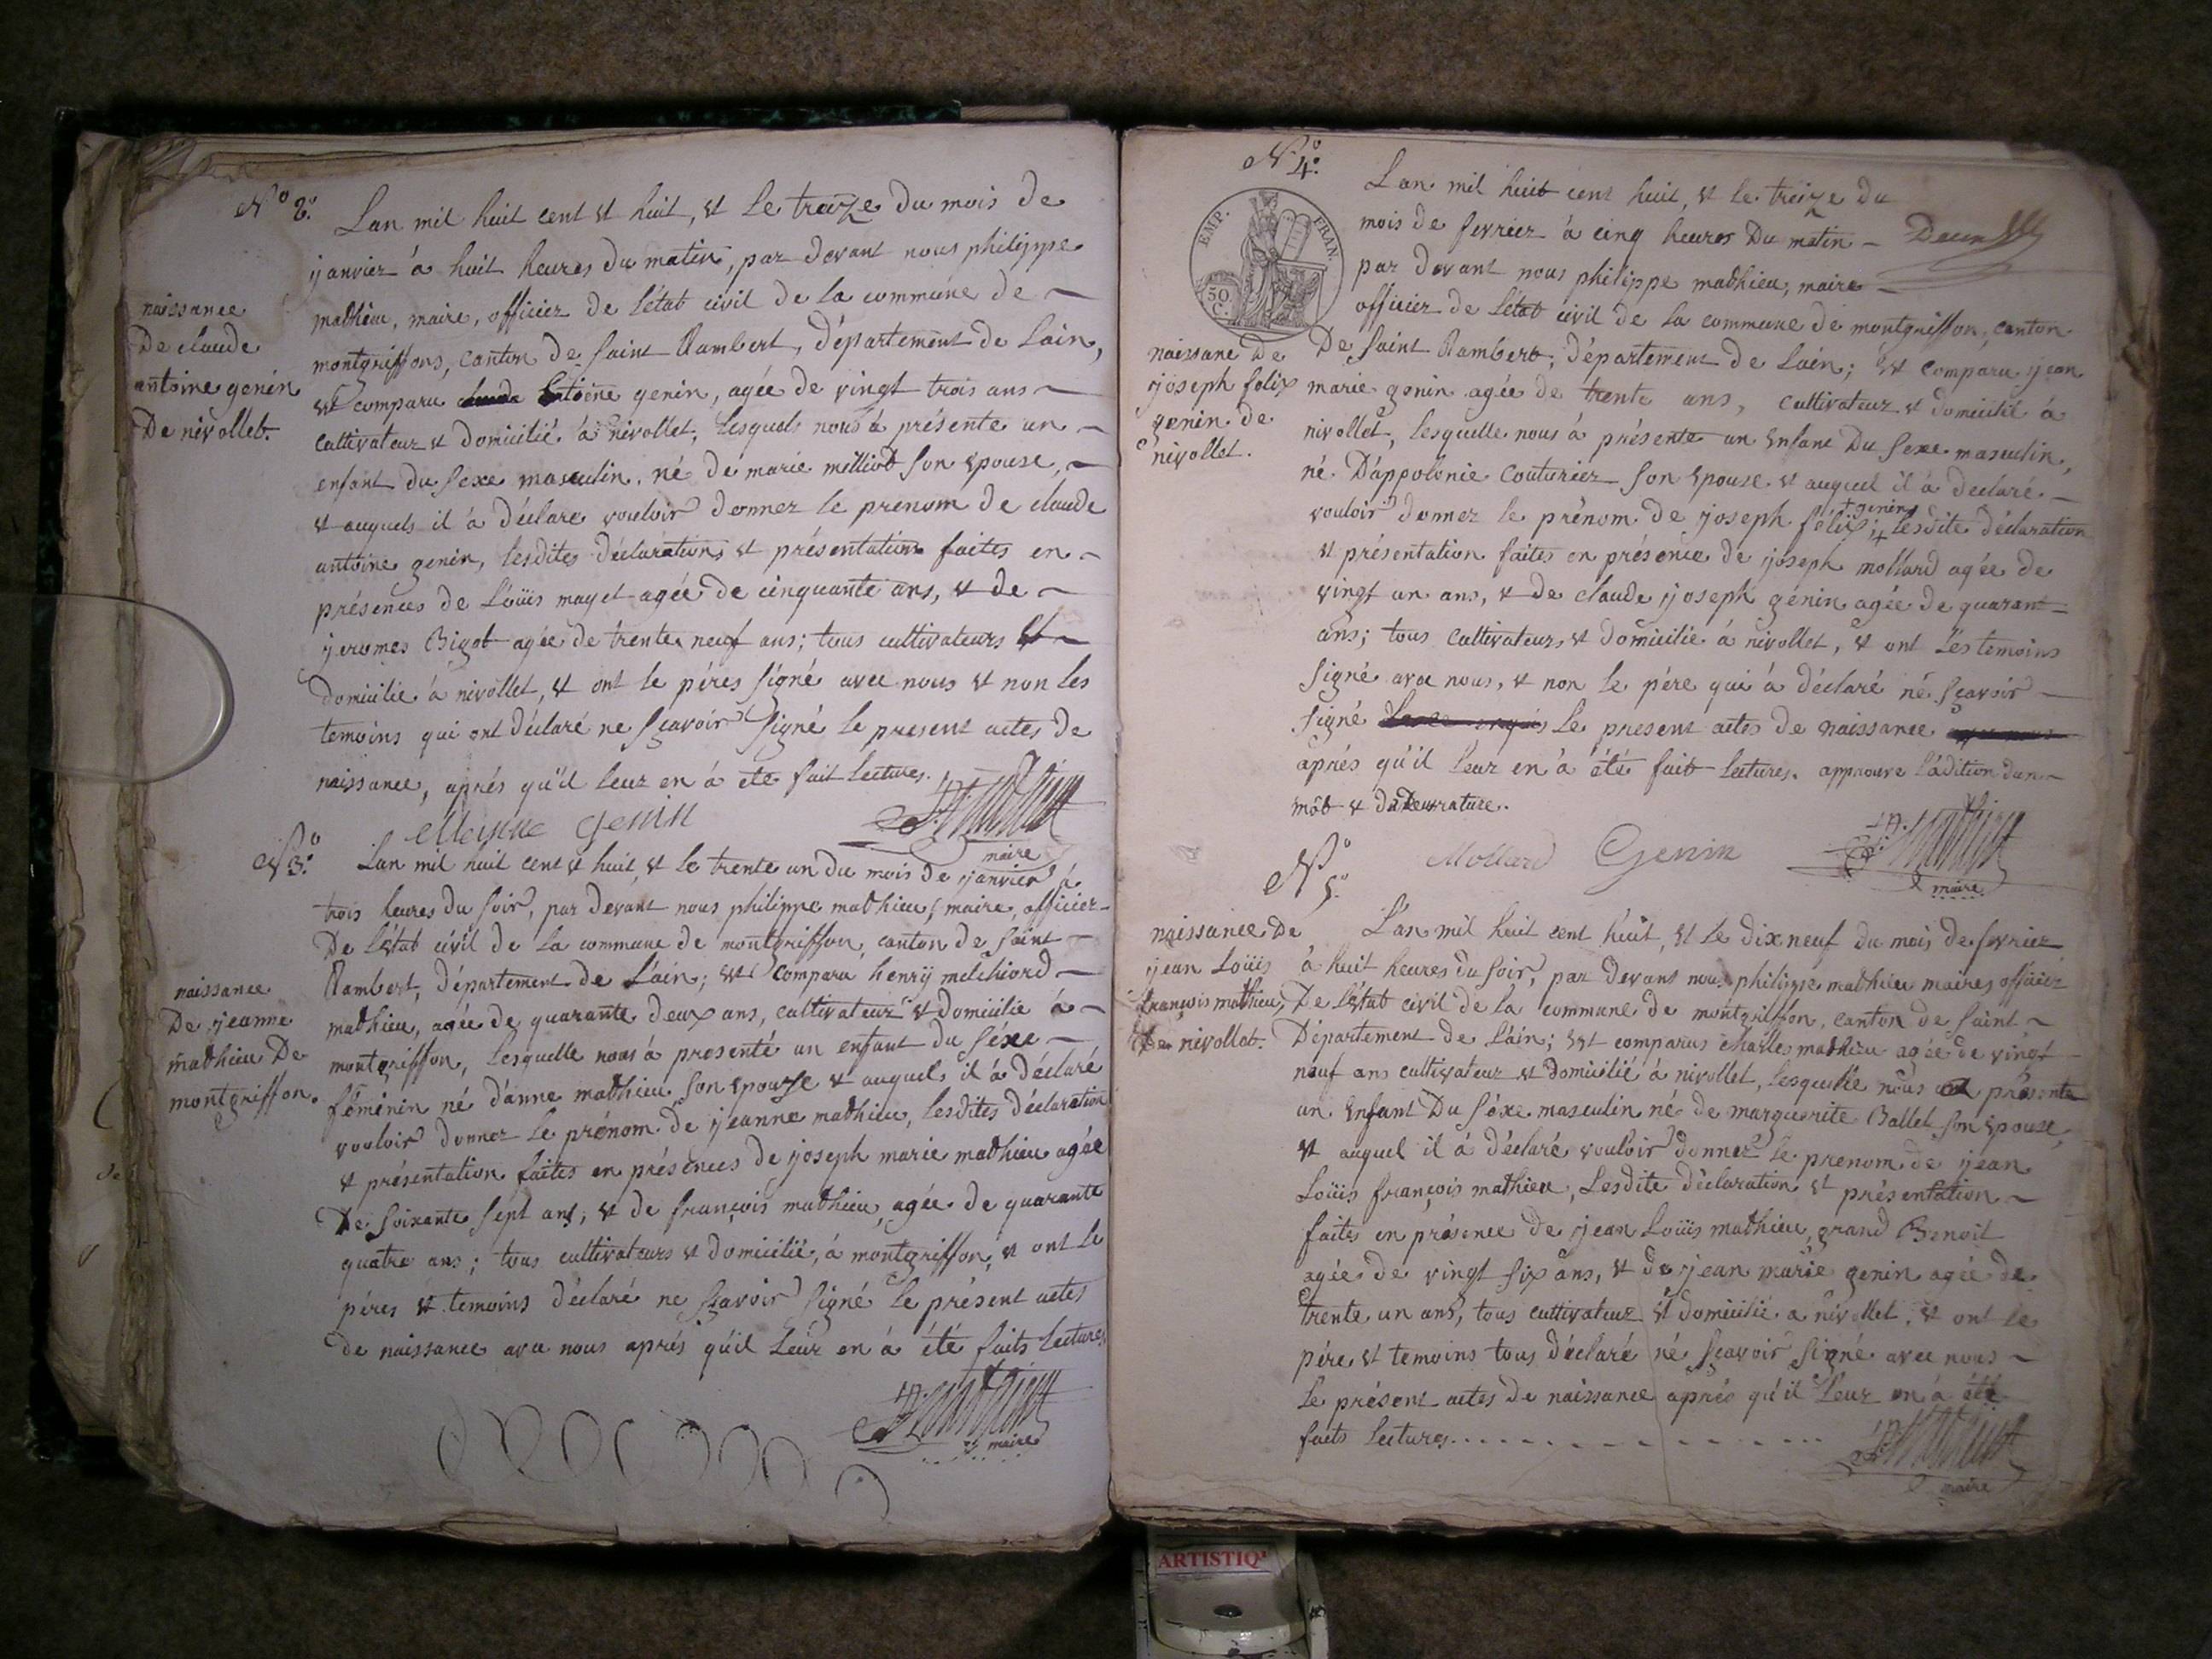 N° 2.
Lan mil huit cent et huit, et le treize du mois de
janvier à huit heures du matin, par devant nous philippe
mathieu, maire, officier de l'état civil de la commune de
montgriffons, canton de saint Rambert, département de Lain,
est comparu antoine genin, agée de vingt trois ans
cultivateur et domicilié à nivollet, lesquels nous à présente un
enfant du sexe masculin, né de marie milliod son epouse,
et auquels il à déclare vouloir donner le prenom de claude
antoine genin, lesdites déclarations et présentations faites en
présences de Loüis mayet agée de cinquante ans, et de
jeromes Bigot agée de trente neuf ans; tous cultivateurs et
domicilie à nivollet, et ont le péres signé avec nous et non les
temoins qui ont déclaré ne sçavoir signé le present actes de
naissance, aprés qu'il leur en à ete fait lectures.
naissance
De claude
antoine genin
De nivollet.
genin
maire
N° 3.
Lan mil huit cent et huit, et le trente un du mois de janvier à
trois heures du soir, par devant nous philippe mathieu, maire, officier
De l'état civil de la commune de montgriffon, canton de saint
Rambert, département de L'ain; est compara henrij melchiord
mathieu, agée de quarante deux ans, cultivateur et domicilie à
montgriffon, lesquelle nous à presenté un enfant du séxe
féminin né d'anne mathieu son epouse et auquels il à déclaré
vouloir donner le prénom de jeanne mathieu, lesdites déclaration
et présentation faites en présences de joseph marie mathieu agée
De soixante sept ans; et de françois mathieu, agée de quarante
quatre ans; tous cultivateurs et domicilié, à montgriffon, et ont le
péres et temoins déclaré ne sçavoir signé le présent actes
de naissance avec nous aprés qu'il leur en à été faits lectures
naissance
De jeanne
mathieu De
montgriffon.
maire
N° 4.
EMP. FRAN.
50 C.
Lan mil huit cent huit, et le treize du
mois de fevrier à cinq heures Du matin
par devant nous philippe mathieu, maire
officier de l'état civil de la commune de montgriffon, canton
De saint Rambert, département de Lain; est comparu jean
marie genin agée de trente ans, cultivateur et domicilié à
nivollet, lesquelle nous à présente un enfant Du sexe masculin,
né D'appolonie couturier son epouse et auquel il à declaré
vouloir donner le prénom de joseph félix; + lesdite déclaration
+ genin
et présentation faites en présence de joseph mollard agée de
vingt un ans, et de claude joseph génin agée de quarant
ans; tous cultivateurs et domicilie à nivollet, et ont les temoins
signé avec nous, et non le pére qui à déclaré né sçavoir
signé le present actes de naissance
aprés qu'il leur en à été fait lectures. approuve l'adition dun
môt et
naissane De
joseph felix
genin de
nivollet.
Mollard Genin
maire
N° 5.
L'an mil huit cent huit, et le dix neuf du mois de fevrier
à huit heures du soir, par devant nous philippe mathieu maires officier
De l'état civil de la commune de montgriffon, canton de saint
Département de L'ain; est comparus charles mathieu agée de vingt
neuf ans cultivateur et domicilié à nivollet, lesquelle nous à présente
un enfant Du séxe masculin né de marguerite Ballet son epouse,
et auquel il à déclaré vouloir donner le prenom de jean
Loüis françois mathieu, Lesdite déclaration et présentation
faites en présence de jean Loüis mathieu, grand Benoit
agée de vingt six ans, et de jean marie genin agée de
trente un ans, tous cultivateur et domicilié a nivollet, et ont le
pére et temoins tous déclaré né sçavoir signé avec nous
le présent actes de naissance aprés qu'il leur en à été
faits lectures
naissance De
jean Loüis
françois mathieu,
De nivollet.
maire
ARTISTIQ